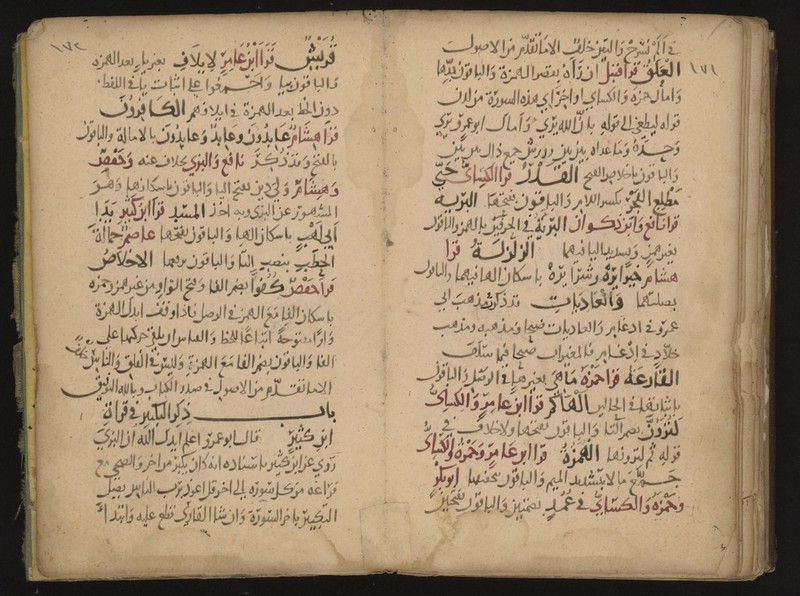 ١٧١
في ألم نشرح والتين خلف الا ما تقدم من الاصول
العلق قرا قنبل ان رأه بقصر الهمزة والباقون بمدها
وامال حمزة والكسائي واواخر اي هذه السورة من لدن
قوله ليطغى الى قوله بان الله يرى وامال ابو عمرو يرى
وحده وما عداه بين بين وورش جميع ذلك بين بين
والباقون باخلاص الفتح القدر قرا الكسائي حتى
مطلع الفجر بكسر اللام والباقون بفتحها البرية
قرا نافع وابن ذكوان البرية في الحرفين بالهمز والباقون
بغير همز وتشديد اليا فيهما الزلزلة قرا
هشام خيرا يره وشرا يره باسكان الها فيهما والباقون
بصلتهما والعاديات قد ذكرت مذهب ابي
عمرو في ادغام والعاديات ضبحا ومذهبه ومذهب
خلاد في ادغام فالمغيرات صبحا فيما سلف
القارعة قرا حمزة ما هي بغير ها في الوصل والباقون
باثباتها في الحالين الهاكم قرا ابن عامر والكسائي
لترون بضم التا والباقون بفتحها ولا خلاف في
قوله ثم لترونها الهمزة قرا ابن عامر وحمزة والكسائي
جمع مالا بتشديد الميم والباقون بتخفيفها ابو بكر
وحمزة والكسائي في عمد بضمتين والباقون بفتحتين
١٧٢
قريش قرا ابن عامر لإلاف بغير يا بعد الهمزة
والباقون بيا واجمعوا على اثبات يا في اللفظ
دون الخط بعد الهمزة في ايلافهم الكافرون
قرا هشام عابدون وعابد وعابدون بالامالة والباقون
بالفتح وقد ذكر نافع والبزي بخلاف عنه وحفص
وهشام ولي دين بفتح اليا والباقون باسكانها وهو
المشهور عن البزي وبه اخذ المسد قرا ابن كثير يدا
ابي لهب باسكان الها والباقون بفتحها عاصم حمالة
الحطب بنصب التا والباقون برفعها الاخلاص
قرا حفص كفوا بضم الفا وفتح الواو من غير همز وحمزة
باسكان الفا مع الهمز في الوصل فاذا وقف ابدل الهمزة
واوا مفتوحة اتباعا للخط والقياس ان يلقي حركتها على
الفا والباقون بضم الفا مع الهمزة وليس في الفلق والناس خلف
الا ما تقدم من الاصول في صدر الكتاب وبالله التوفيق
باب ذكر التكبير في قراة
ابن كثير قال ابو عمرو اعلم ايدك الله ان البزي
روى عن ابن كثير باسناده انه كان يكبر من اخر والضحى مع
فراغه من كل سورة الى اخر قل اعوذ برب الناس يصل
التكبير باخر السورة وان شا القاري قطع عليه وابتدا